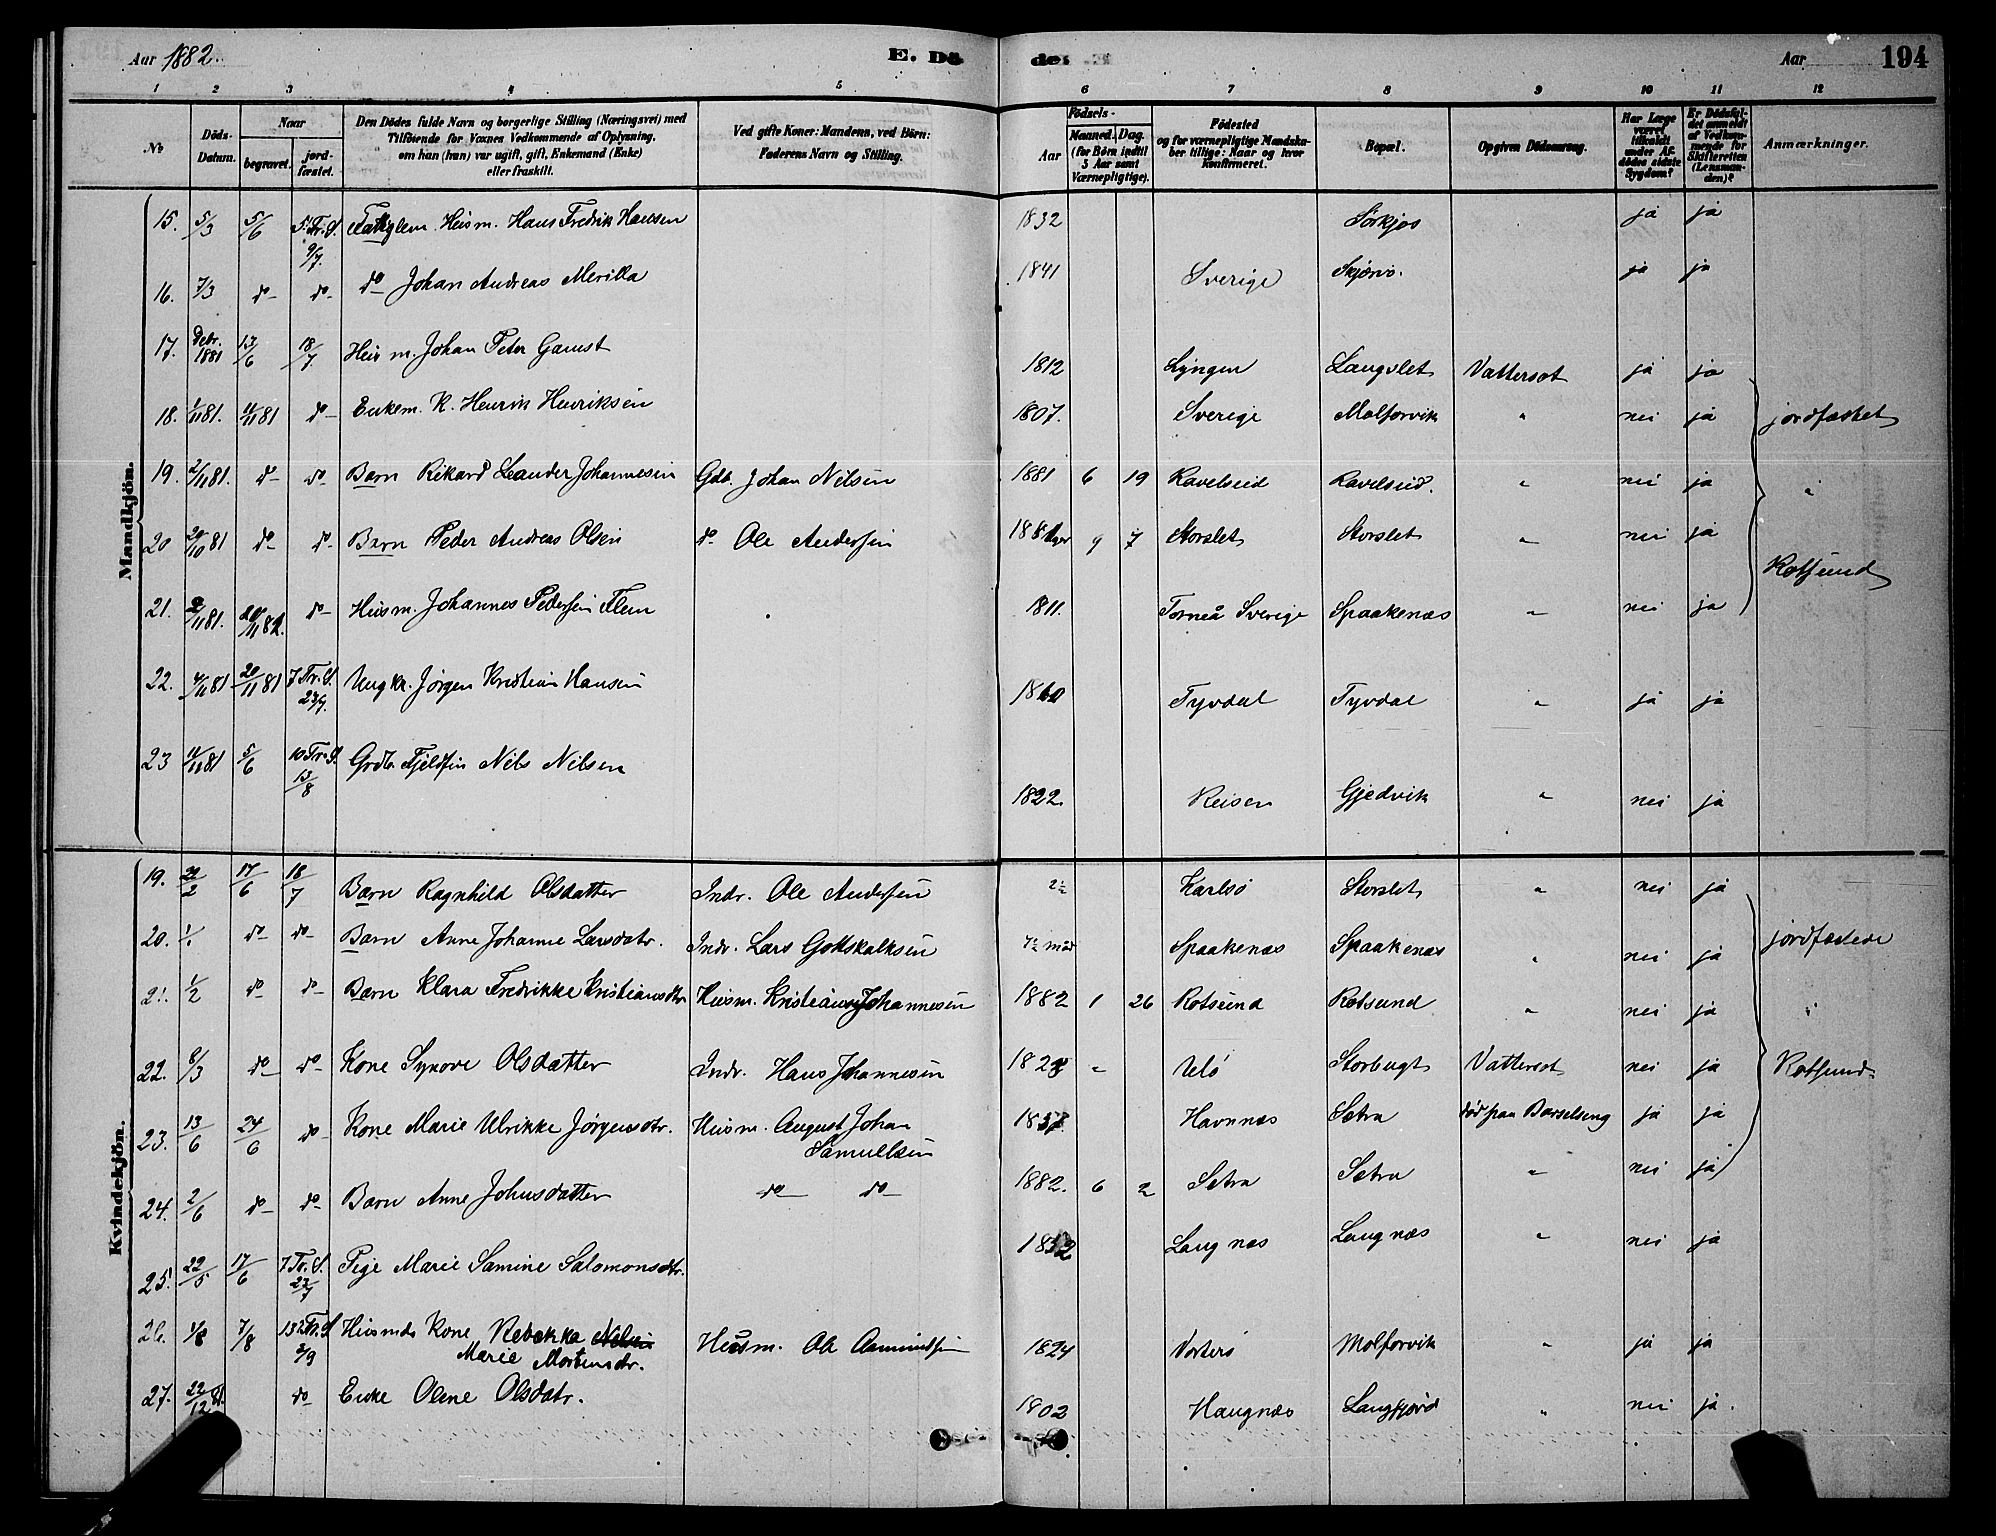 Aar 1882. E. Dö de: Aar 194
1 2 3 4 5 6 7 8 9 10 11 12
No Döds-Datum. Naar begravet. jord-fæstet. Den Dödes fulde Navn og borgerlige Stilling (Næringsvei) med Tilföiende for Voxnes Vedkommende af Oplysning, om han (hun) var ugift, gift, Enkemand (Enke) eller fraskilt. Ved gifte Koner: Mandens, ved Börn: Faderens Navn og Stilling. Födsels- Aar Maaned. Dag. (for Börn indtil 3 Aar samt Værnepligtige). Födested og for værnepligtige Mandskaber tillige: Naar og hvor konfirmeret. Bopæl. Opgiven Dödsaarsag. Har Læge været tilkaldt under Afdödes sidste Sygdom? Er Dödsfaldet anmeldt af Vedkommende for Skifteretten (Lensmanden)? Anmærkninger.
Mandkjön.
15. 5/3 5/6 5 Tr. S. 9/7. Fattiglem. Husm. Hans Fredrik Hansen 1832 Sørkjos ja ja
16. 7/3 do do do Johan Andreas Merilla 1841 Sverige Skjærvø. ja ja
17. Debr. 1881 13/6 18/7 Husm. Johan Peter Gamst 1812 Lyngen Langslet Vattersot ja ja
18. 1/11 81. 11/11 81 do Enkem. K. Henrik Henriksen 1807. Sverige Molforvik " nei ja jordfæstet
19. 2/11 81. do do Barn Rikard Leander Johannesen Gdb. Johan Nilsen 1881 6 19 Ravelseid Ravelseid. " nei ja "
20 29/10 81 do do Barn Peder Andreas Olsen do Ole Andersen 1881 9 7 Storslet Storslet " nei ja Rotsund
21. 81. 20/11 82. do Husm. Johannes Pedersen Flem 1811. Torneå Sverige Spaakenæs " nei ja
22. 4/11 81 20/11 81 7 Tr. S. 23/7. Ungkr. Jørgen Kristian Hansen 1860 Tyvdal Tyvdal " ja ja
23 11/11 81 5/6 10 Tr. S. 13/8 Grdb. Fjeldfin Nils Nilsen 1822. Reisen Gjedvik " nei ja
Kvindekjön.
19. 22/2 17/6 18/7 Barn Ragnhild Olsdatter Indr. Ole Andersen 2½ Karlsø Storslet " nei ja
20. do do Barn Anne Johanne Larsdatr. Indr. Lars Gottskalksen 7½ mdr Spaakenæs Spaakenæs " nei ja jordfæstede
21. 1/2 do do Barn Klara Fredrikke Kristiansdtr Husm. Kristian Johannesen 1882 1 26 Rotsund Rotsund " nei ja "
22. 8/3 do do Kone Synove Olsdatter Indr. Hans Johannesen 1828 " Uløe Storbugt Vattersot nei ja Rotsund
23. 13/6 24/6 do Kone Marie Ulrikke Jørgensdtr. Husm. August Johan Samuelsen Havnnæs Sætra død paa Barselseng ja ja
24. 2/6 do do Barn Anne Johnsdatter do do 1882. 6 2 Sætra Sætra " nei ja
25. 22/5 17/6 7 Tr. S. 23/7 Pige Marie Samine Salomonsdtr. Langnæs Langnæs " nei ja
26. 1/8 7/8 13 Tr. S. 3/9 Husmds Kone Rebekka Nilsen Marie Mortensdr. Husm. Ole Aamundsen 1824 Vorterø Molforvik " ja ja
27. 22/12 81. do Enke Olene Olsdatr. 1802 Haugnæs Langfjord " nei ja.